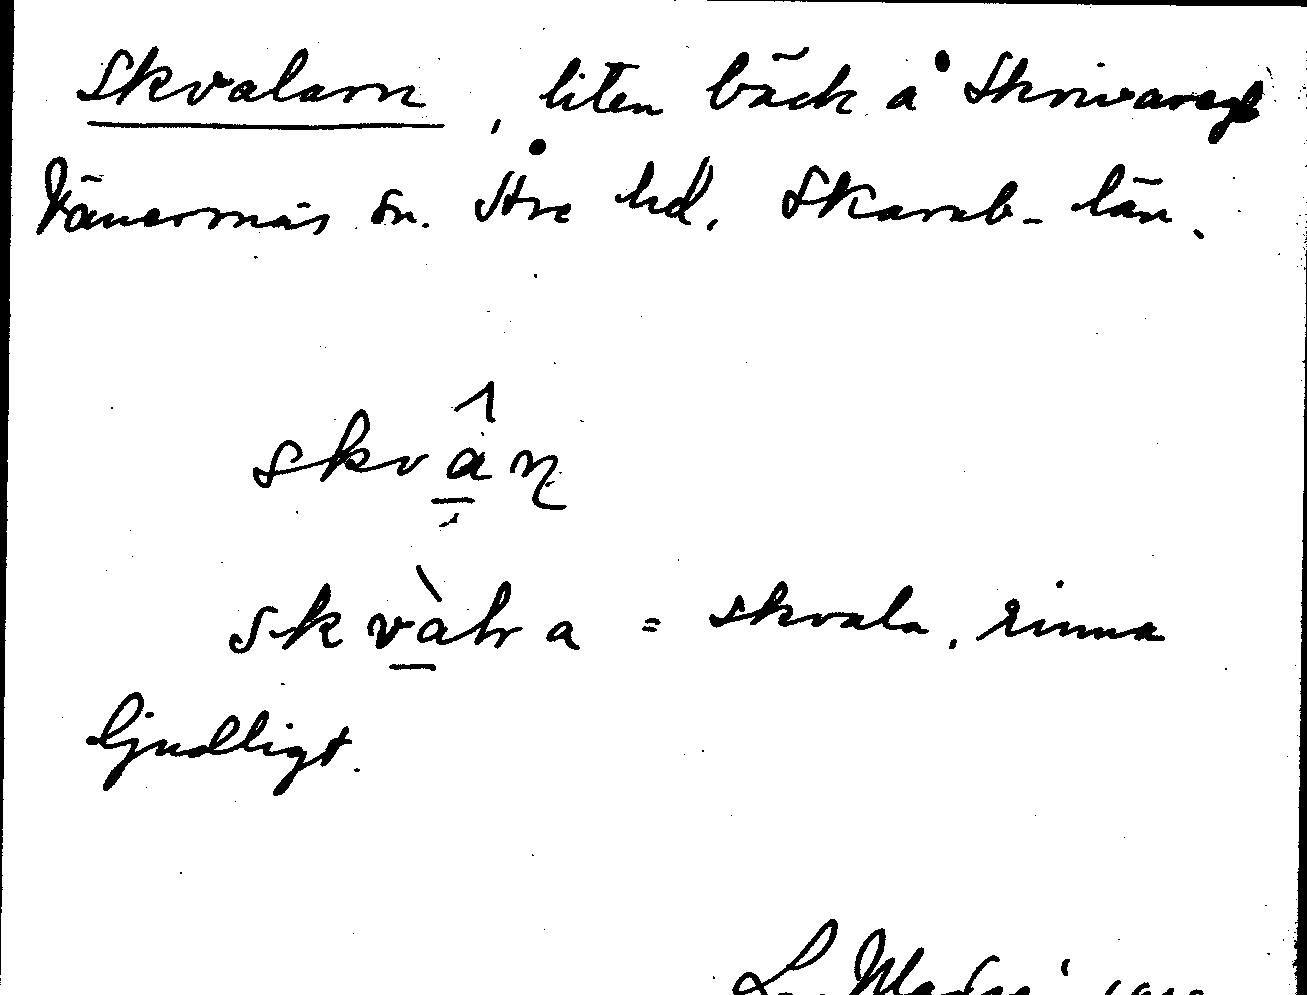 Skvalarn, liten bäck å Skrivareg
Vänersnäs sn. Åse hd. Skarab- län.
skvàn
skvàlra = skvala, rinna
ljudligt.
L.